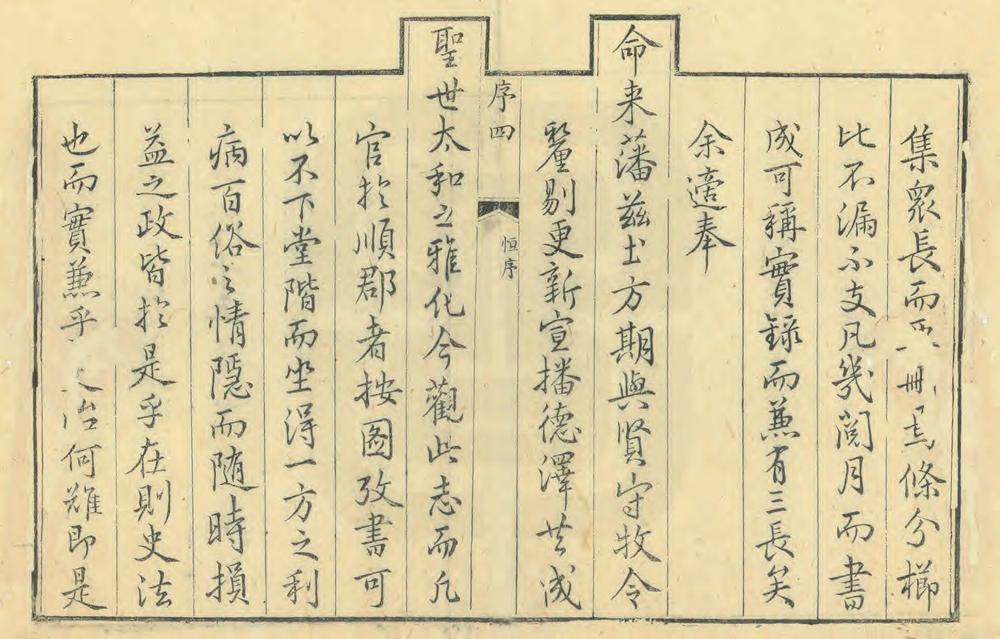 集眾長而 刪焉條分櫛
比不漏不支凡幾閱月而書
成可稱實錄而兼有三長矣
余適奉
命来藩茲土方期與賢守牧令
釐剔更新宣播德澤共成
序四
恒序
聖世太和之雅化今觀此志而凡
官於順郡者按圖攷書可
以不下堂階而坐得一方之利
病百俗之情隱而随時損
益之政皆於是乎在則史法
也而實兼乎 治何難即是